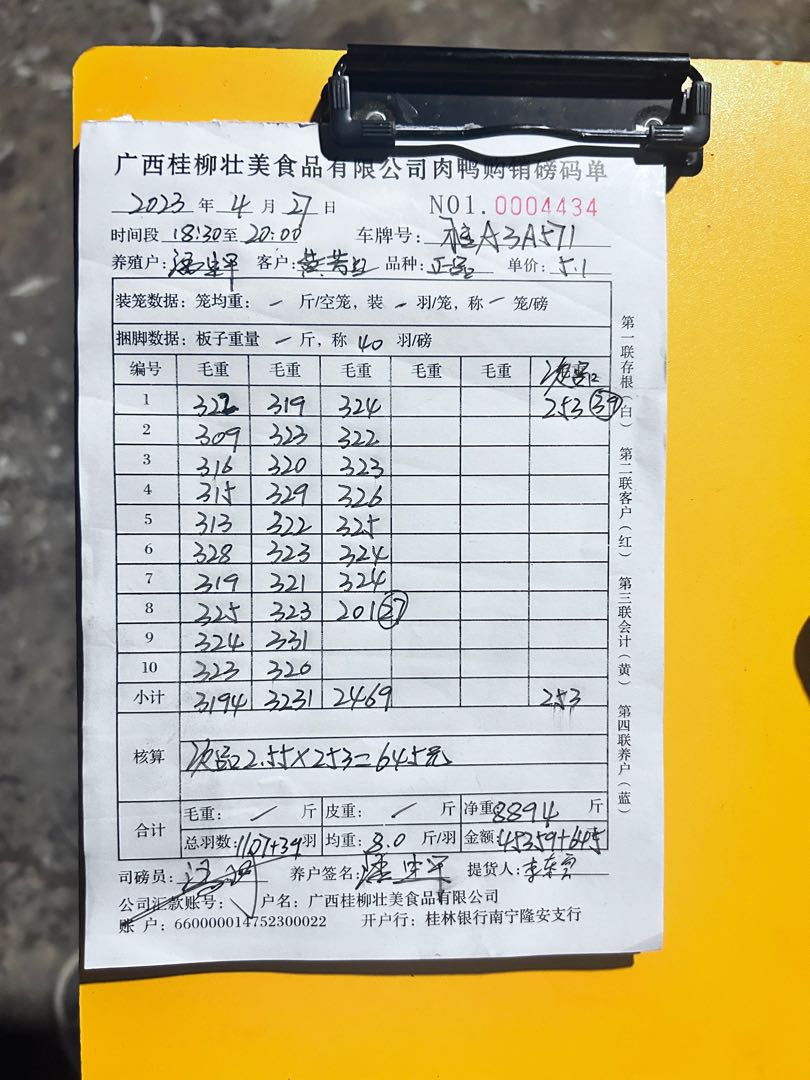 广西桂柳壮美食品有限公司肉鸭购销磅码单
2023 年 4 月 27 日 NO1.0004434
时间段 18:30至 20:00 车牌号: 桂A3A571
养殖户: 客户: 品种: 正品 单价: 5.1
装笼数据: 笼均重: — 斤/空笼, 装 — 羽/笼, 称 — 笼/磅
捆脚数据: 板子重量 — 斤, 称 40 羽/磅
编号 毛重 毛重 毛重 毛重 毛重 次品
1 322 319 324 253 39
2 309 323 322
3 316 320 323
4 315 329 326
5 313 322 325
6 328 323 324
7 319 321 324
8 325 323 201 27
9 324 331
10 323 320
小计 3194 3231 2469 253
核算 次品2.55×253=645元
合计 毛重: / 斤 皮重: / 斤 净重: 8894 斤
总羽数: 1107+39 羽 均重: 8.0 斤/羽 金额: 45359+645
司磅员: 养户签名: 提货人:
公司汇款账号: 户名: 广西桂柳壮美食品有限公司
账 户: 660000014752300022 开户行: 桂林银行南宁隆安支行
第一联存根(白) 第二联客户(红) 第三联会计(黄) 第四联养户(蓝)